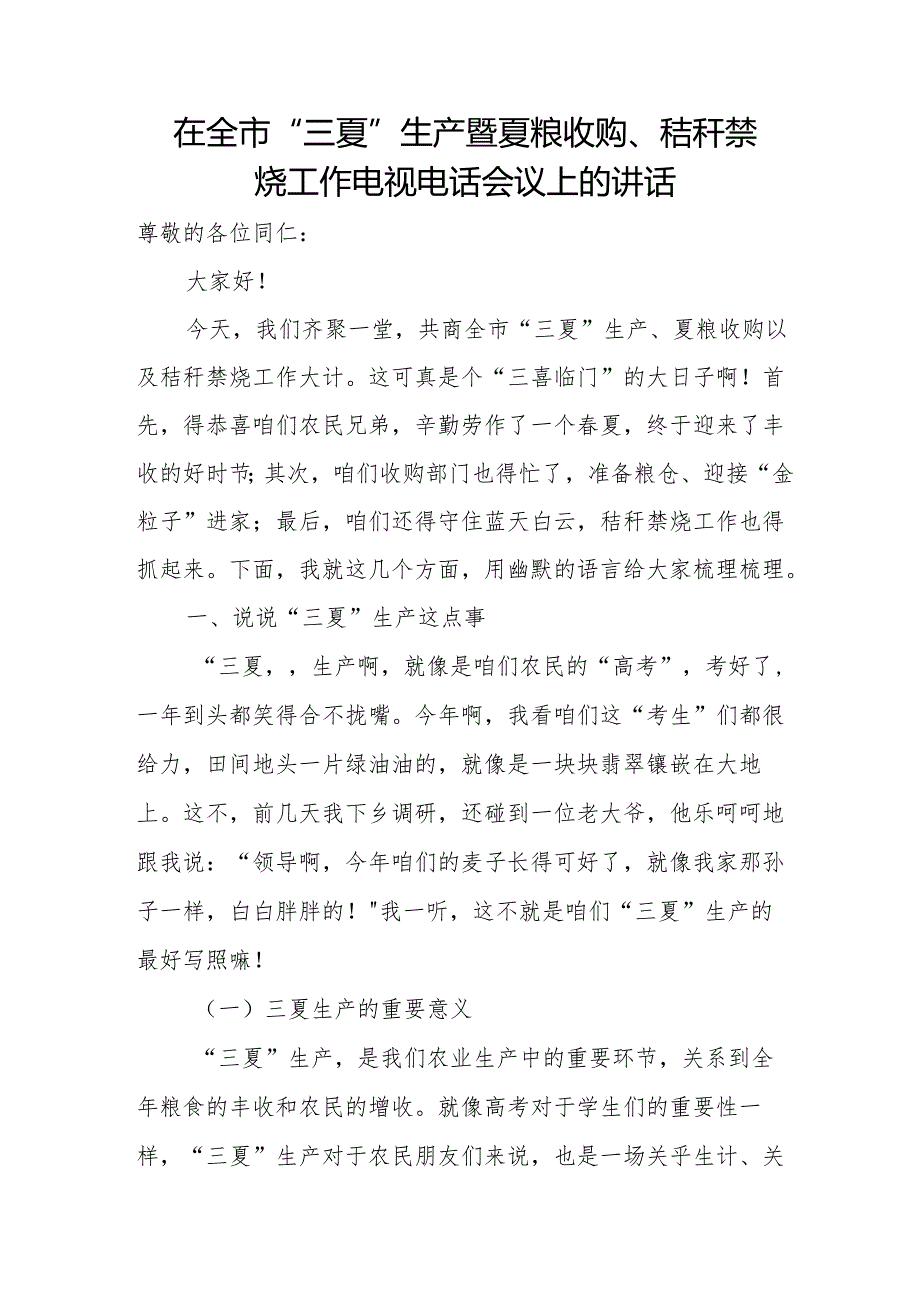 在全市“三夏”生产暨夏粮收购、秸秆禁
烧工作电视电话会议上的讲话
尊敬的各位同仁：
大家好！
今天，我们齐聚一堂，共商全市“三夏”生产、夏粮收购以
及秸秆禁烧工作大计。这可真是个“三喜临门”的大日子啊！首
先，得恭喜咱们农民兄弟，辛勤劳作了一个春夏，终于迎来了丰
收的好时节；其次，咱们收购部门也得忙了，准备粮仓、迎接“金
粒子”进家；最后，咱们还得守住蓝天白云，秸秆禁烧工作也得
抓起来。下面，我就这几个方面，用幽默的语言给大家梳理梳理。
一、说说“三夏”生产这点事
“三夏，，生产啊，就像是咱们农民的“高考”，考好了，
一年到头都笑得合不拢嘴。今年啊，我看咱们这“考生”们都很
给力，田间地头一片绿油油的，就像是一块块翡翠镶嵌在大地
上。这不，前几天我下乡调研，还碰到一位老大爷，他乐呵呵地
跟我说：“领导啊，今年咱们的麦子长得可好了，就像我家那孙
子一样，白白胖胖的！"我一听，这不就是咱们“三夏”生产的
最好写照嘛！
（一）三夏生产的重要意义
“三夏”生产，是我们农业生产中的重要环节，关系到全
年粮食的丰收和农民的增收。就像高考对于学生们的重要性一
样，“三夏”生产对于农民朋友们来说，也是一场关乎生计、关